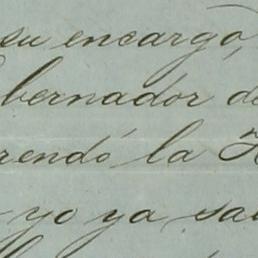 su encargo,
bernador de
rendó la
yo ya sa